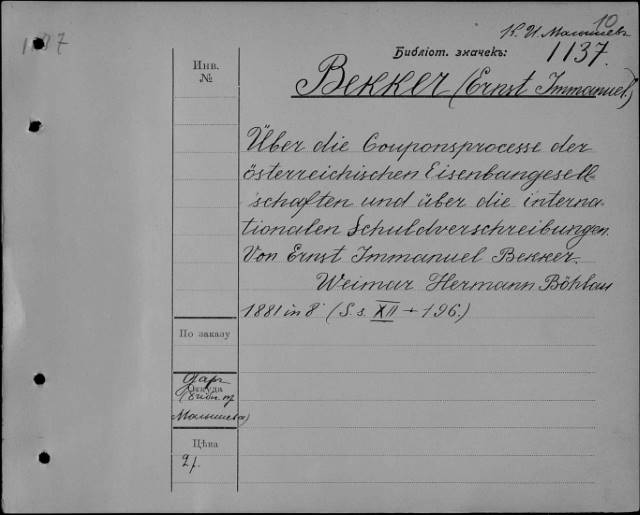 10
К. И. Малышевъ
1137
Библіот. значекъ:
1137.
Инв.
№
Bekker (Ernst Immanuel)
Über die Couponsprocesse der
österreichischen Eisenbangesell-
schaften und über die interna-
tionalen Schuldverschreibungen.
Von Ernst Immanuel Bekker.
Weimar Hermann Böhlau
1881 in 8° (S.s. XII + 196.)
По заказу
Даръ
Откуда
Малышева)
Цѣна
2 р.